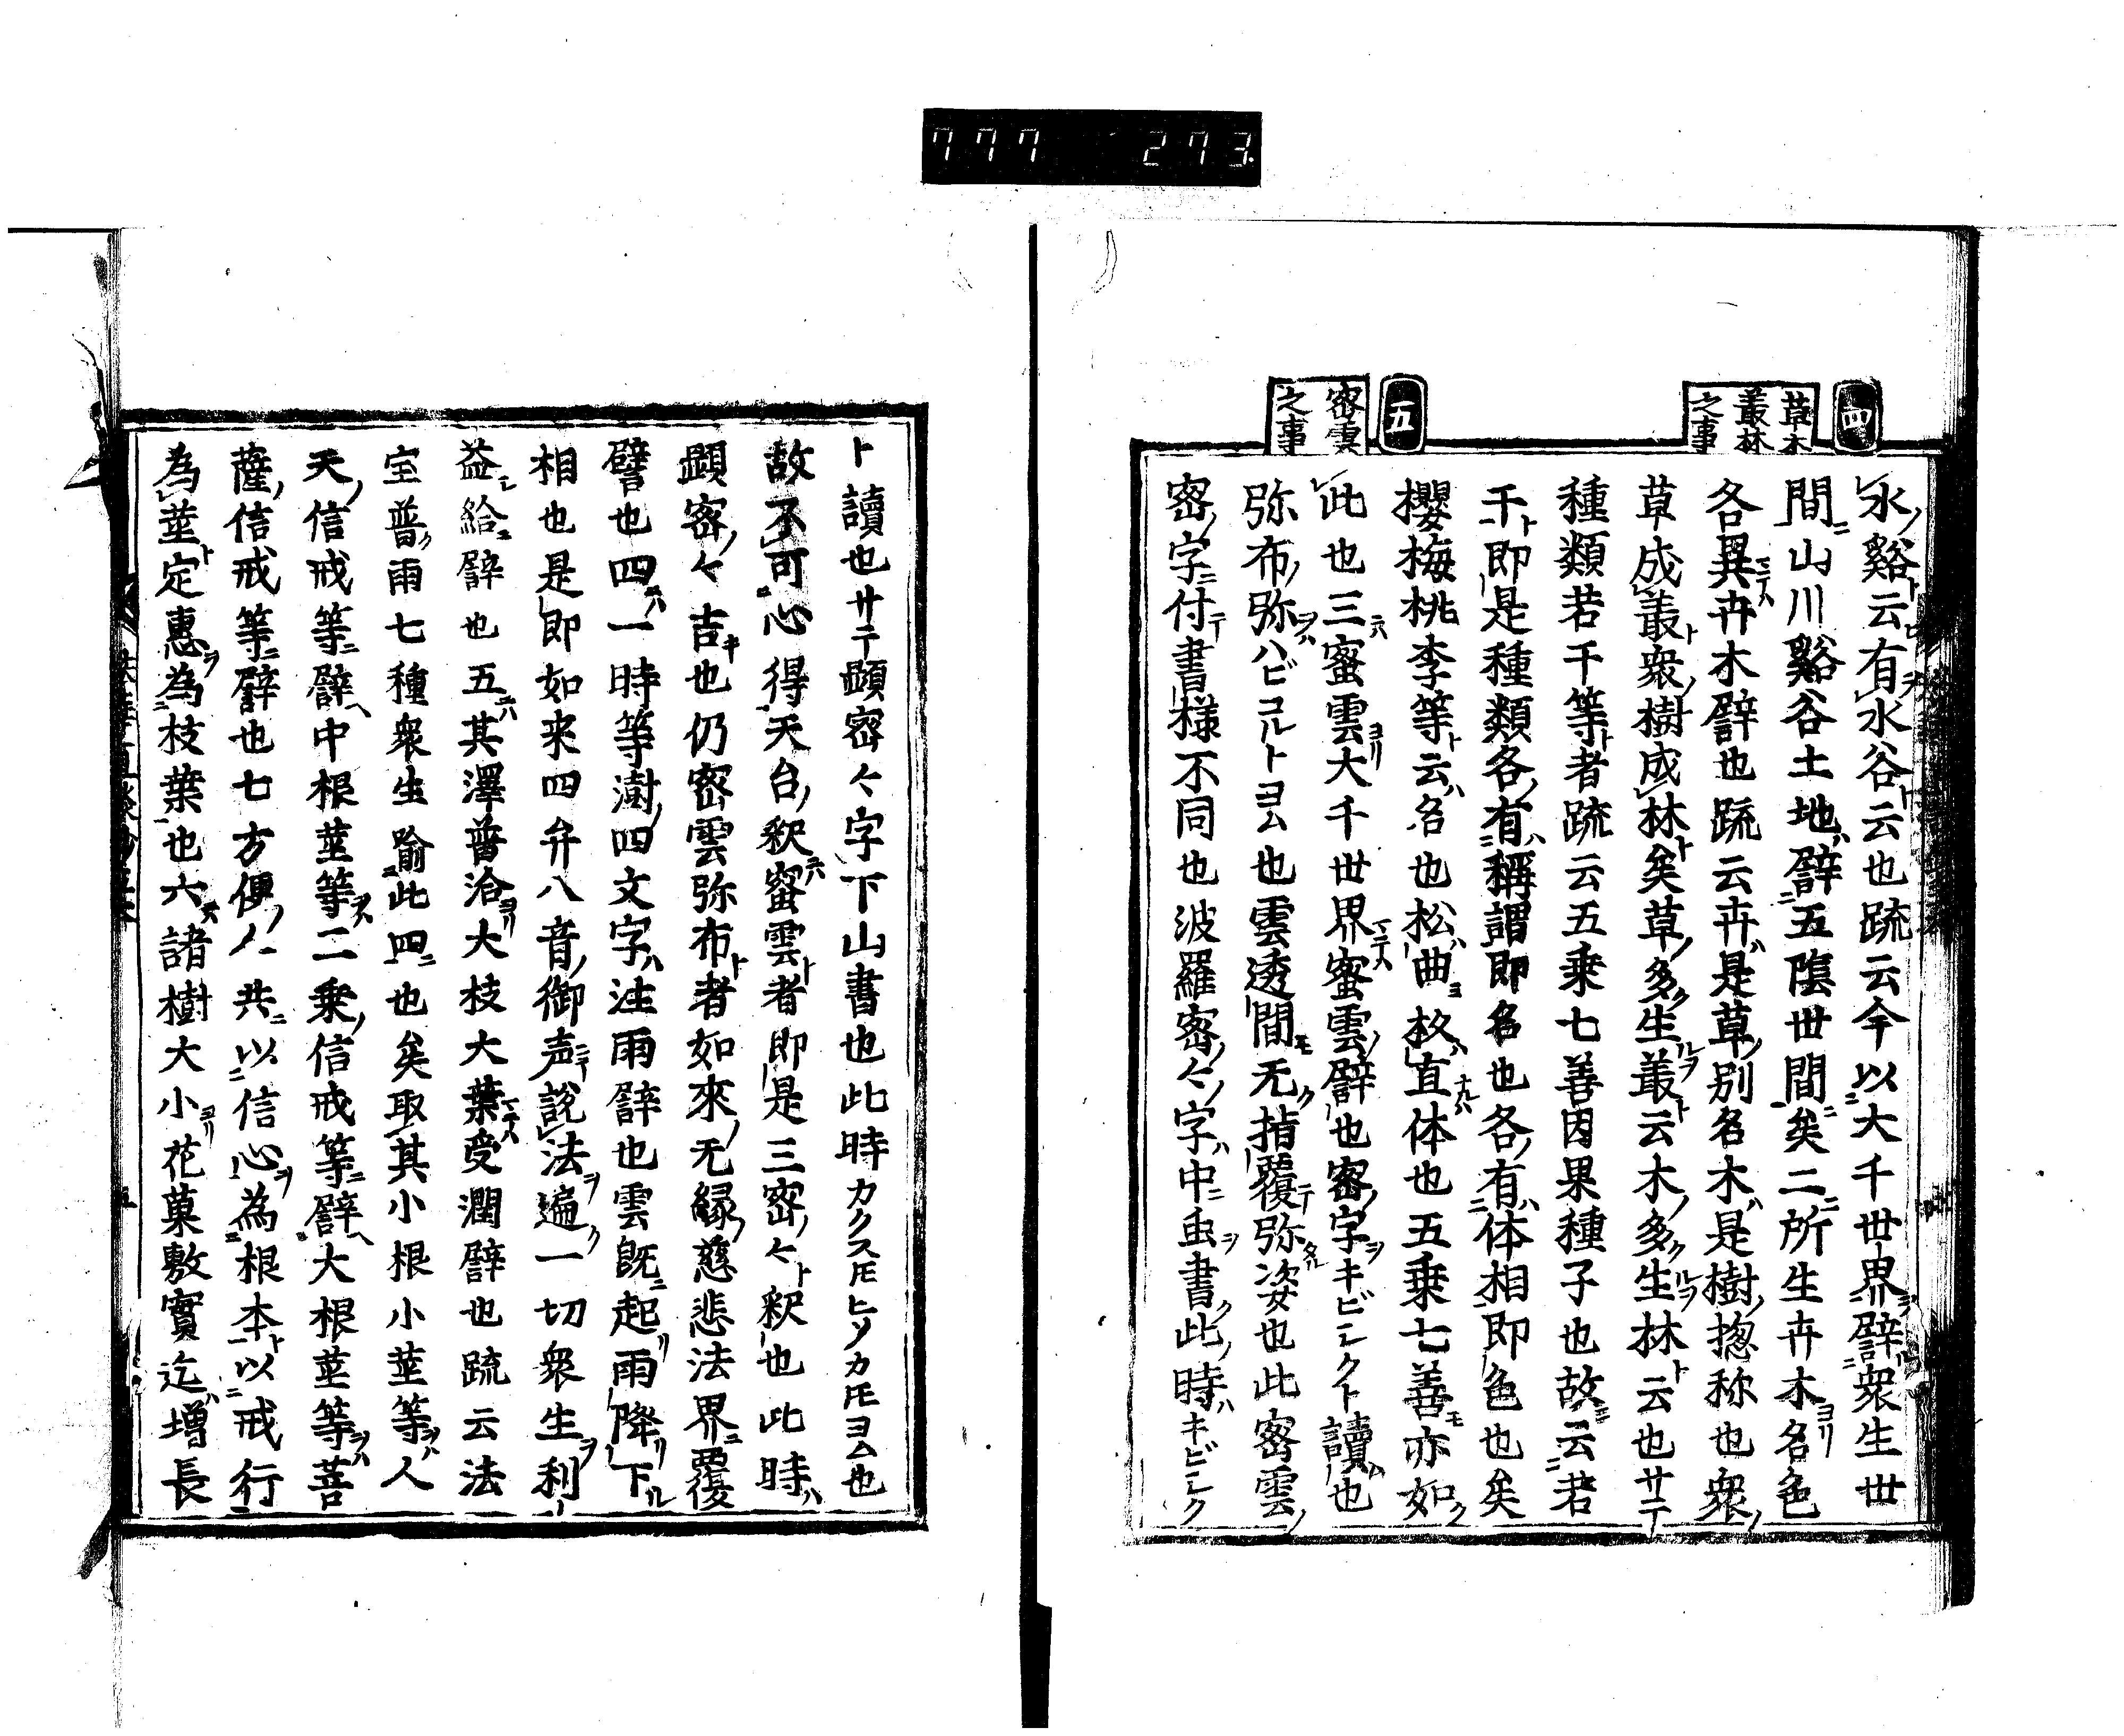 777 273
四
草木
叢林
之事
五
密雲
之事
水ノ谿ト云有水谷ト云也疏云今以大千世界ヲ譬衆生世
間ニ山川谿谷土地ハ譬五陰世間ニ矣二ニ所生卉木ヨリ名色
各異マテハ卉木譬也疏云卉ハ是草ノ別名木ハ是樹ノ惣称也衆ノ
草成叢ト衆ノ樹成林ト矣草ノ多ク生ルヲ叢ト云木ノ多ク生ルヲ林ト云也サテ
種類若干等ト者疏云五乗七善因果種子也故ニ云若
干ト即是種類各ノ有ハ稱謂即名也各ノ有ハ体相即色也矣
櫻梅桃李等ト云ハ名也松ハ曲ヨ杦ハ直ナルハ体也五乗七善モ亦如ク
此也三ニハ蜜雲ヨリ大千世界マテハ蜜雲ノ譬也密ノ字ヲキビシクト讀ム也
弥布ノ弥ヲハハビコルトヨム也雲透間モ无ク指覆テ弥タル姿也此密雲ノ
密ノ字ニ付テ書様不同也波羅密ノ々ノ字ハ中ニ虫ヲ書ク此ノ時ハキビシク
ト讀也サテ顕密々字ノ下山書也此時カクストモヒソカトモヨム也
故不可心得天台ノ釈ニハ蜜雲ト者即是三密ノ々ト釈也此時ハ
顕密ノ々吉キ也仍密雲弥布ト者如來ノ无縁ノ慈悲法界ニ覆
譬也四ニハ一時等澍ノ四文字ハ注雨譬也雲既ニ起リ雨降リ下ル
相也是即如来四弁八音ノ御声ニテ説法ヲ遍ク一切衆生ヲ利
益シ給ニ譬也五ニハ其澤普洽ヨリ大枝大葉マテハ受潤譬也疏云法
宝普ク雨七種衆生喩此四ニ也矣取其小根小莖等ヲハ人
天ノ信戒等ニ譬ヘ中根莖等ヲハ二乗ノ信戒等ニ譬ヘ大根莖等ヲハ菩
薩ノ信戒等ニ譬也七方便ノ人共ニ以信心ヲ為根本ト以戒行
為莖ト定惠ヲ為枝葉也六ニハ諸樹大小ヨリ花菓敷實迄ハ増長